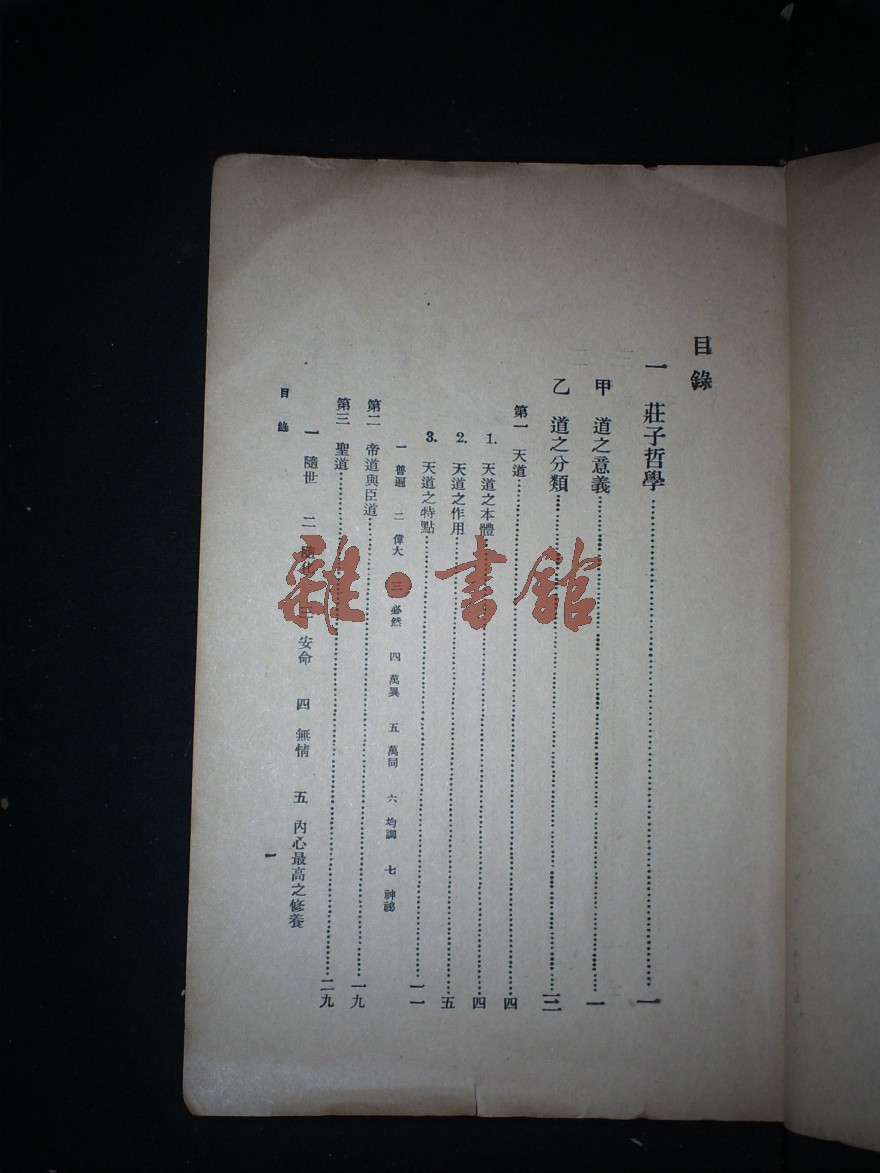 目錄
一 莊子哲學……一
甲 道之意義……一
乙 道之分類……三
第一 天道……四
1. 天道之本體……四
2. 天道之作用……五
3. 天道之特點……一一
一 普遍 二 偉大 三 必然 四 萬異 五 萬同 六 均調 七 神祕
第二 帝道與臣道……一九
第三 聖道……二九
一 隨世 二 隨化 三 安命 四 無情 五 內心最高之修養
目錄
一
雜·書館